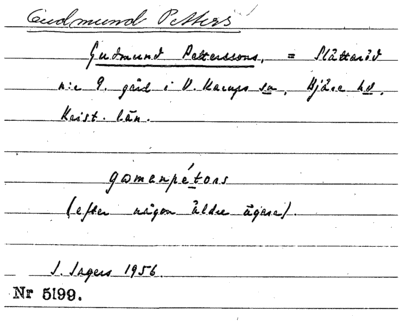 Gudmund Petters
Gudmund Petterssons, = Slättaröd
n:r 9. gård i V. Karups sn, Bjäre hd.
Krist. län.
gomenpétors
(efter någon äldre ägare).
I. Ingers 1956
Nr 5199.